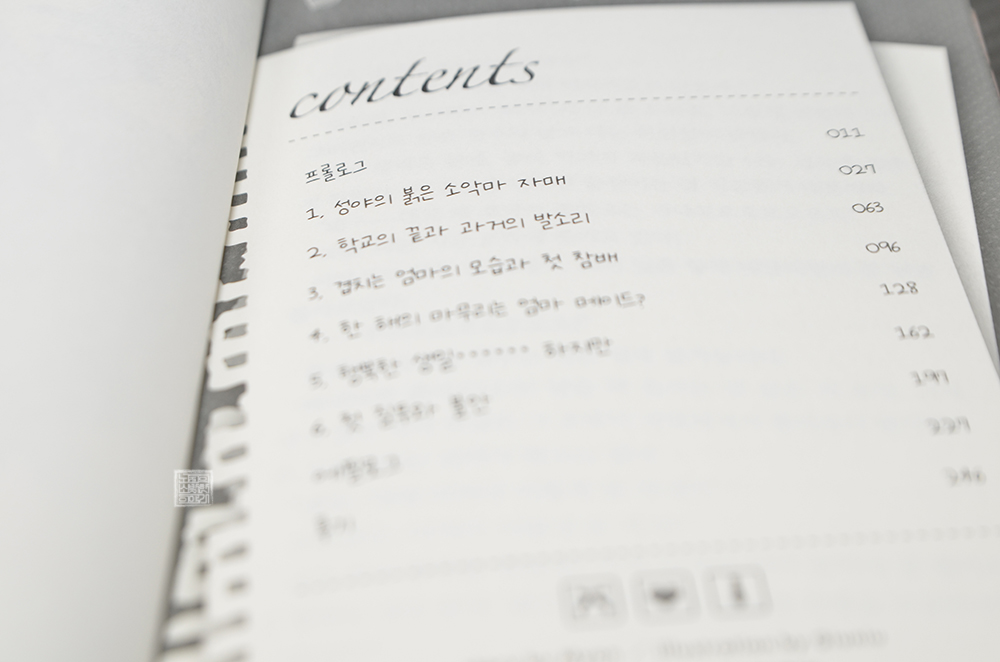 contents
프롤로그 011
1. 성야의 붉은 소악마 자매 027
2. 학교의 끝과 과거의 발소리 063
3. 겹치는 엄마의 모습과 첫 참배 096
4. 한 해의 마무리는 엄마 메이드? 128
5. 행복한 생일…… 하지만 162
6. 첫 질투와 불안 191
에필로그 227
후기